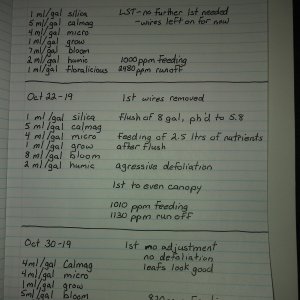 1 ml/gal silica    LST-no further lst needed
5 ml/gal calmag    -wires left on for now
4 ml/gal micro
1 ml/gal grow
7 ml/gal bloom
2 ml/gal humic    1000 ppm feeding
1 ml/gal floralicious    2480 ppm runoff
Oct 22-19    lst wires removed
1 ml/gal silica    flush of 8 gal, ph'd to 5.8
5 ml/gal calmag
4 ml/gal micro    feeding of 2.5 ltrs of nutrients
1 ml/gal grow    after flush
8 ml/gal bloom
2 ml/gal humic    agressive defoliation
lst to even canopy
1010 ppm feeding
1130 ppm run off
Oct 30-19    lst no adjustment
no defoliation
4ml/gal Calmag    leafs look good
4ml/gal micro
1ml/gal grow
5ml/gal bloom